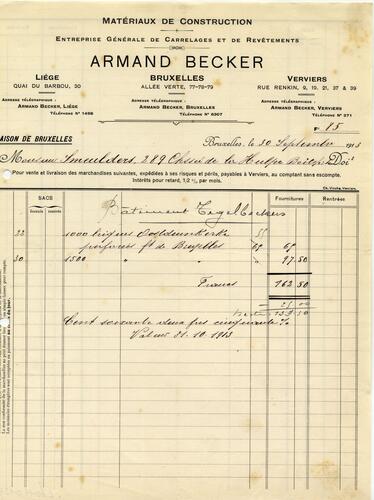 MATÉRIAUX DE CONSTRUCTION
ENTREPRISE GÉNÉRALE DE CARRELAGES ET DE REVÊTEMENTS
ARMAND BECKER
LIÉGE
QUAI DU BARBOU, 30
ADRESSE TÉLÉGRAPHIQUE :
ARMAND BECKER, LIÉGE
TÉLÉPHONE Nº 1498
BRUXELLES
ALLÉE VERTE, 77-78-79
ADRESSE TÉLÉGRAPHIQUE :
ARMAND BECKER, BRUXELLES
TÉLÉPHONE Nº 6307
VERVIERS
RUE RENKIN, 9, 19, 21, 37 & 39
ADRESSE TÉLÉGRAPHIQUE :
ARMAND BECKER, VERVIERS
TÉLÉPHONE Nº 271
15
MAISON DE BRUXELLES
Bruxelles, le 30 Septembre 1913
Monsieur 289 Chssée de la Hulpe Doit
Pour vente et livraison des marchandises suivantes, expédiées à ses risques et périls, payables à Verviers, au comptant sans escompte.
Intérêts pour retard, 1/2 %, par mois.
SACS Fournitures Rentrées
fournis rendus
Bâtiment
22 1000 briques
perforées ft de Bruxelles 65 65
30 1500 " " " 97.50
Francs 162.50
Cent soixante deux frs cinquante
Valeur 31.10.1913